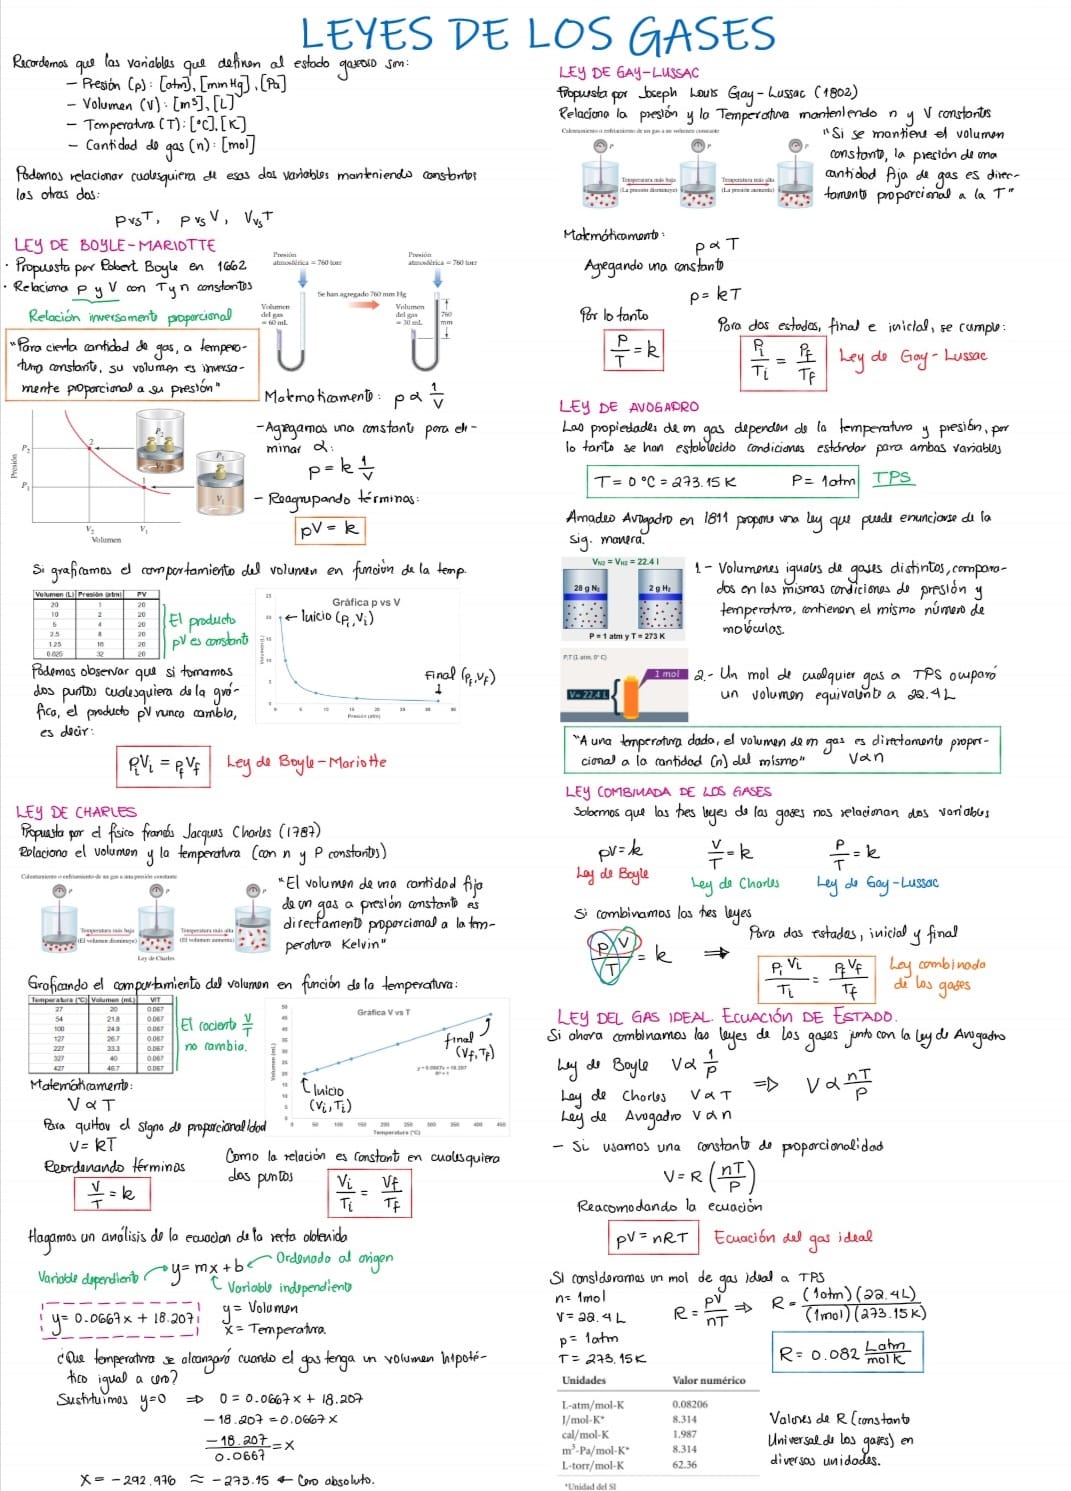 LEYES DE LOS GASES
Recordemos que las variables que definen al estado gaseoso son:
– Presión (p): [atm], [mmHg], [Pa]
– Volumen (V): [m³], [L]
– Temperatura (T): [°C], [K]
– Cantidad de gas (n): [mol]
Podemos relacionar cualesquiera de esas dos variables manteniendo constantes
las otras dos:
p vs T, p vs V, V vs T
LEY DE BOYLE-MARIOTTE
· Propuesta por Robert Boyle en 1662
· Relaciona p y V con T y n constantes
Relación inversamente proporcional
"Para cierta cantidad de gas, a tempera-
tura constante, su volumen es inversa-
mente proporcional a su presión"
Presión
atmosférica = 760 torr
Presión
atmosférica = 760 torr
Se han agregado 760 mm Hg
Volumen
del gas
= 60 mL
Volumen
del gas
= 30 mL
760
mm
Matemáticamente: p α 1/V
– Agregamos una constante para eli-
minar α:
p = k 1/V
– Reagrupando términos:
pV = k
Presión
P₂
P₁
2
1
V₂
V₁
Volumen
P₂
V₂
P₁
V₁
Si graficamos el comportamiento del volumen en función de la temp.
Volumen (L) Presión (atm) PV
20 1 20
10 2 20
5 4 20
2.5 8 20
1.25 16 20
0.625 32 20
El producto
pV es constante
Gráfica p vs V
Inicio (Pi, Vi)
Final (Pf, Vf)
Volumen (L)
Presión (atm)
Podemos observar que si tomamos
dos puntos cualesquiera de la grá-
fica, el producto pV nunca cambia,
es decir:
PiVi = PfVf Ley de Boyle-Mariotte
LEY DE CHARLES
Propuesta por el físico francés Jacques Charles (1787)
Relaciona el volumen y la temperatura (con n y P constantes)
Calentamiento o enfriamiento de un gas a una presión constante
P
P
P
Temperatura más baja
(El volumen disminuye)
Temperatura más alta
(El volumen aumenta)
Ley de Charles
"El volumen de una cantidad fija
de un gas a presión constante es
directamente proporcional a la tem-
peratura Kelvin"
Graficando el comportamiento del volumen en función de la temperatura:
Temperatura (°C) Volumen (mL) V/T
27 20 0.067
54 21.8 0.067
100 24.9 0.067
127 26.7 0.067
227 33.3 0.067
327 40 0.067
427 46.7 0.067
El cociente V/T
no cambia.
Grafica V vs T
final
(Vf, Tf)
y = 0.0667x + 18.207
R² = 1
Inicio
(Vi, Ti)
Volumen (mL)
Temperatura (°C)
Matemáticamente:
V α T
Para quitar el signo de proporcionalidad
V = kT
Reordenando términos
V/T = k
Como la relación es constante en cualesquiera
dos puntos
Vi/Ti = Vf/Tf
Hagamos un análisis de la ecuación de la recta obtenida
Variable dependiente y = mx + b Ordenada al origen
Variable independiente
y = 0.0667x + 18.207
y = Volumen
x = Temperatura.
¿Qué temperatura se alcanzará cuando el gas tenga un volumen hipoté-
tico igual a cero?
Sustituimos y=0 ⇒ 0 = 0.0667x + 18.207
–18.207 = 0.0667x
–18.207/0.0667 = x
x = –272.976 ≈ –273.15 ← Cero absoluto.
LEY DE GAY-LUSSAC
Propuesta por Joseph Louis Gay-Lussac (1802)
Relaciona la presión y la Temperatura manteniendo n y V constantes
Calentamiento o enfriamiento de un gas a un volumen constante
P
P
P
Temperatura más baja
(La presión disminuye)
Temperatura más alta
(La presión aumenta)
"Si se mantiene el volumen
constante, la presión de una
cantidad fija de gas es direc-
tamente proporcional a la T"
Matemáticamente:
p α T
Agregando una constante
p = kT
Por lo tanto
P/T = k
Para dos estados, final e inicial, se cumple:
Pi/Ti = Pf/Tf Ley de Gay-Lussac
LEY DE AVOGADRO
Las propiedades de un gas dependen de la temperatura y presión, por
lo tanto se han establecido condiciones estándar para ambas variables
T = 0°C = 273.15 K P = 1 atm TPS
Amadeo Avogadro en 1811 propone una ley que puede enunciarse de la
sig. manera.
VN2 = VH2 = 22.4 l
28 g N₂
2 g H₂
P = 1 atm y T = 273 K
1.- Volumenes iguales de gases distintos, compara-
dos en las mismas condiciones de presión y
temperatura, contienen el mismo número de
moléculas.
P,T (1 atm, 0° C)
1 mol
V= 22,4 L
2.- Un mol de cualquier gas a TPS ocupará
un volumen equivalente a 22.4L
"A una temperatura dada, el volumen de un gas es directamente propor-
cional a la cantidad (n) del mismo" V α n
LEY COMBINADA DE LOS GASES
Sabemos que las tres leyes de los gases nos relacionan dos variables
pV = k V/T = k P/T = k
Ley de Boyle Ley de Charles Ley de Gay-Lussac
Si combinamos las tres leyes
PV/T = k ⇒
Para dos estados, inicial y final
PiVi/Ti = PfVf/Tf
Ley combinada
de los gases
LEY DEL GAS IDEAL. ECUACIÓN DE ESTADO.
Si ahora combinamos las leyes de los gases junto con la ley de Avogadro
Ley de Boyle V α 1/P
Ley de Charles V α T
Ley de Avogadro V α n
⇒ V α nT/P
– Si usamos una constante de proporcionalidad
V = R (nT/P)
Reacomodando la ecuación
pV = nRT Ecuación del gas ideal
Si consideramos un mol de gas ideal a TPS
n = 1mol
V = 22.4 L
p = 1atm
T = 273.15K
R = pV/nT ⇒ R = (1atm)(22.4L)/(1mol)(273.15K)
R = 0.082 Latm/molK
Unidades Valor numérico
L-atm/mol-K 0.08206
J/mol-K* 8.314
cal/mol-K 1.987
m³-Pa/mol-K* 8.314
L-torr/mol-K 62.36
*Unidad del SI
Valores de R (constante
Universal de los gases) en
diversas unidades.